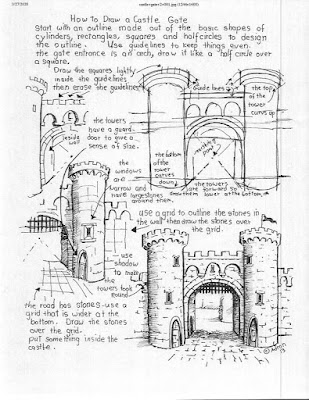 How to Draw a Castle Gate
Start with an outline made out of the basic shapes of
cylinders, rectangles, squares and halfcircles to design
the outline. Use guidelines to keep things even.
the gate entrance is an arch, draw it like a half circle over
a square.
Draw the squares lightly
inside the guidelines
then erase the guidelines
guide lines
the top
of the
tower
curves up
the towers
have a guard
door to give a
sense of size.
inside
wall
vanishing
point
the bottom
of the
tower
curves
down
the towers
are forward so
draw them lower at the bottom.
the
windows
are
narrow and
have large stones
around them.
use a grid to outline the stones in
the wall then draw the stones over
the grid.
use
shadow
to make
the towers look
round.
the road has stones-use a
grid that is wider at the
bottom. Draw the stones
over the grid.
put something inside the
castle.